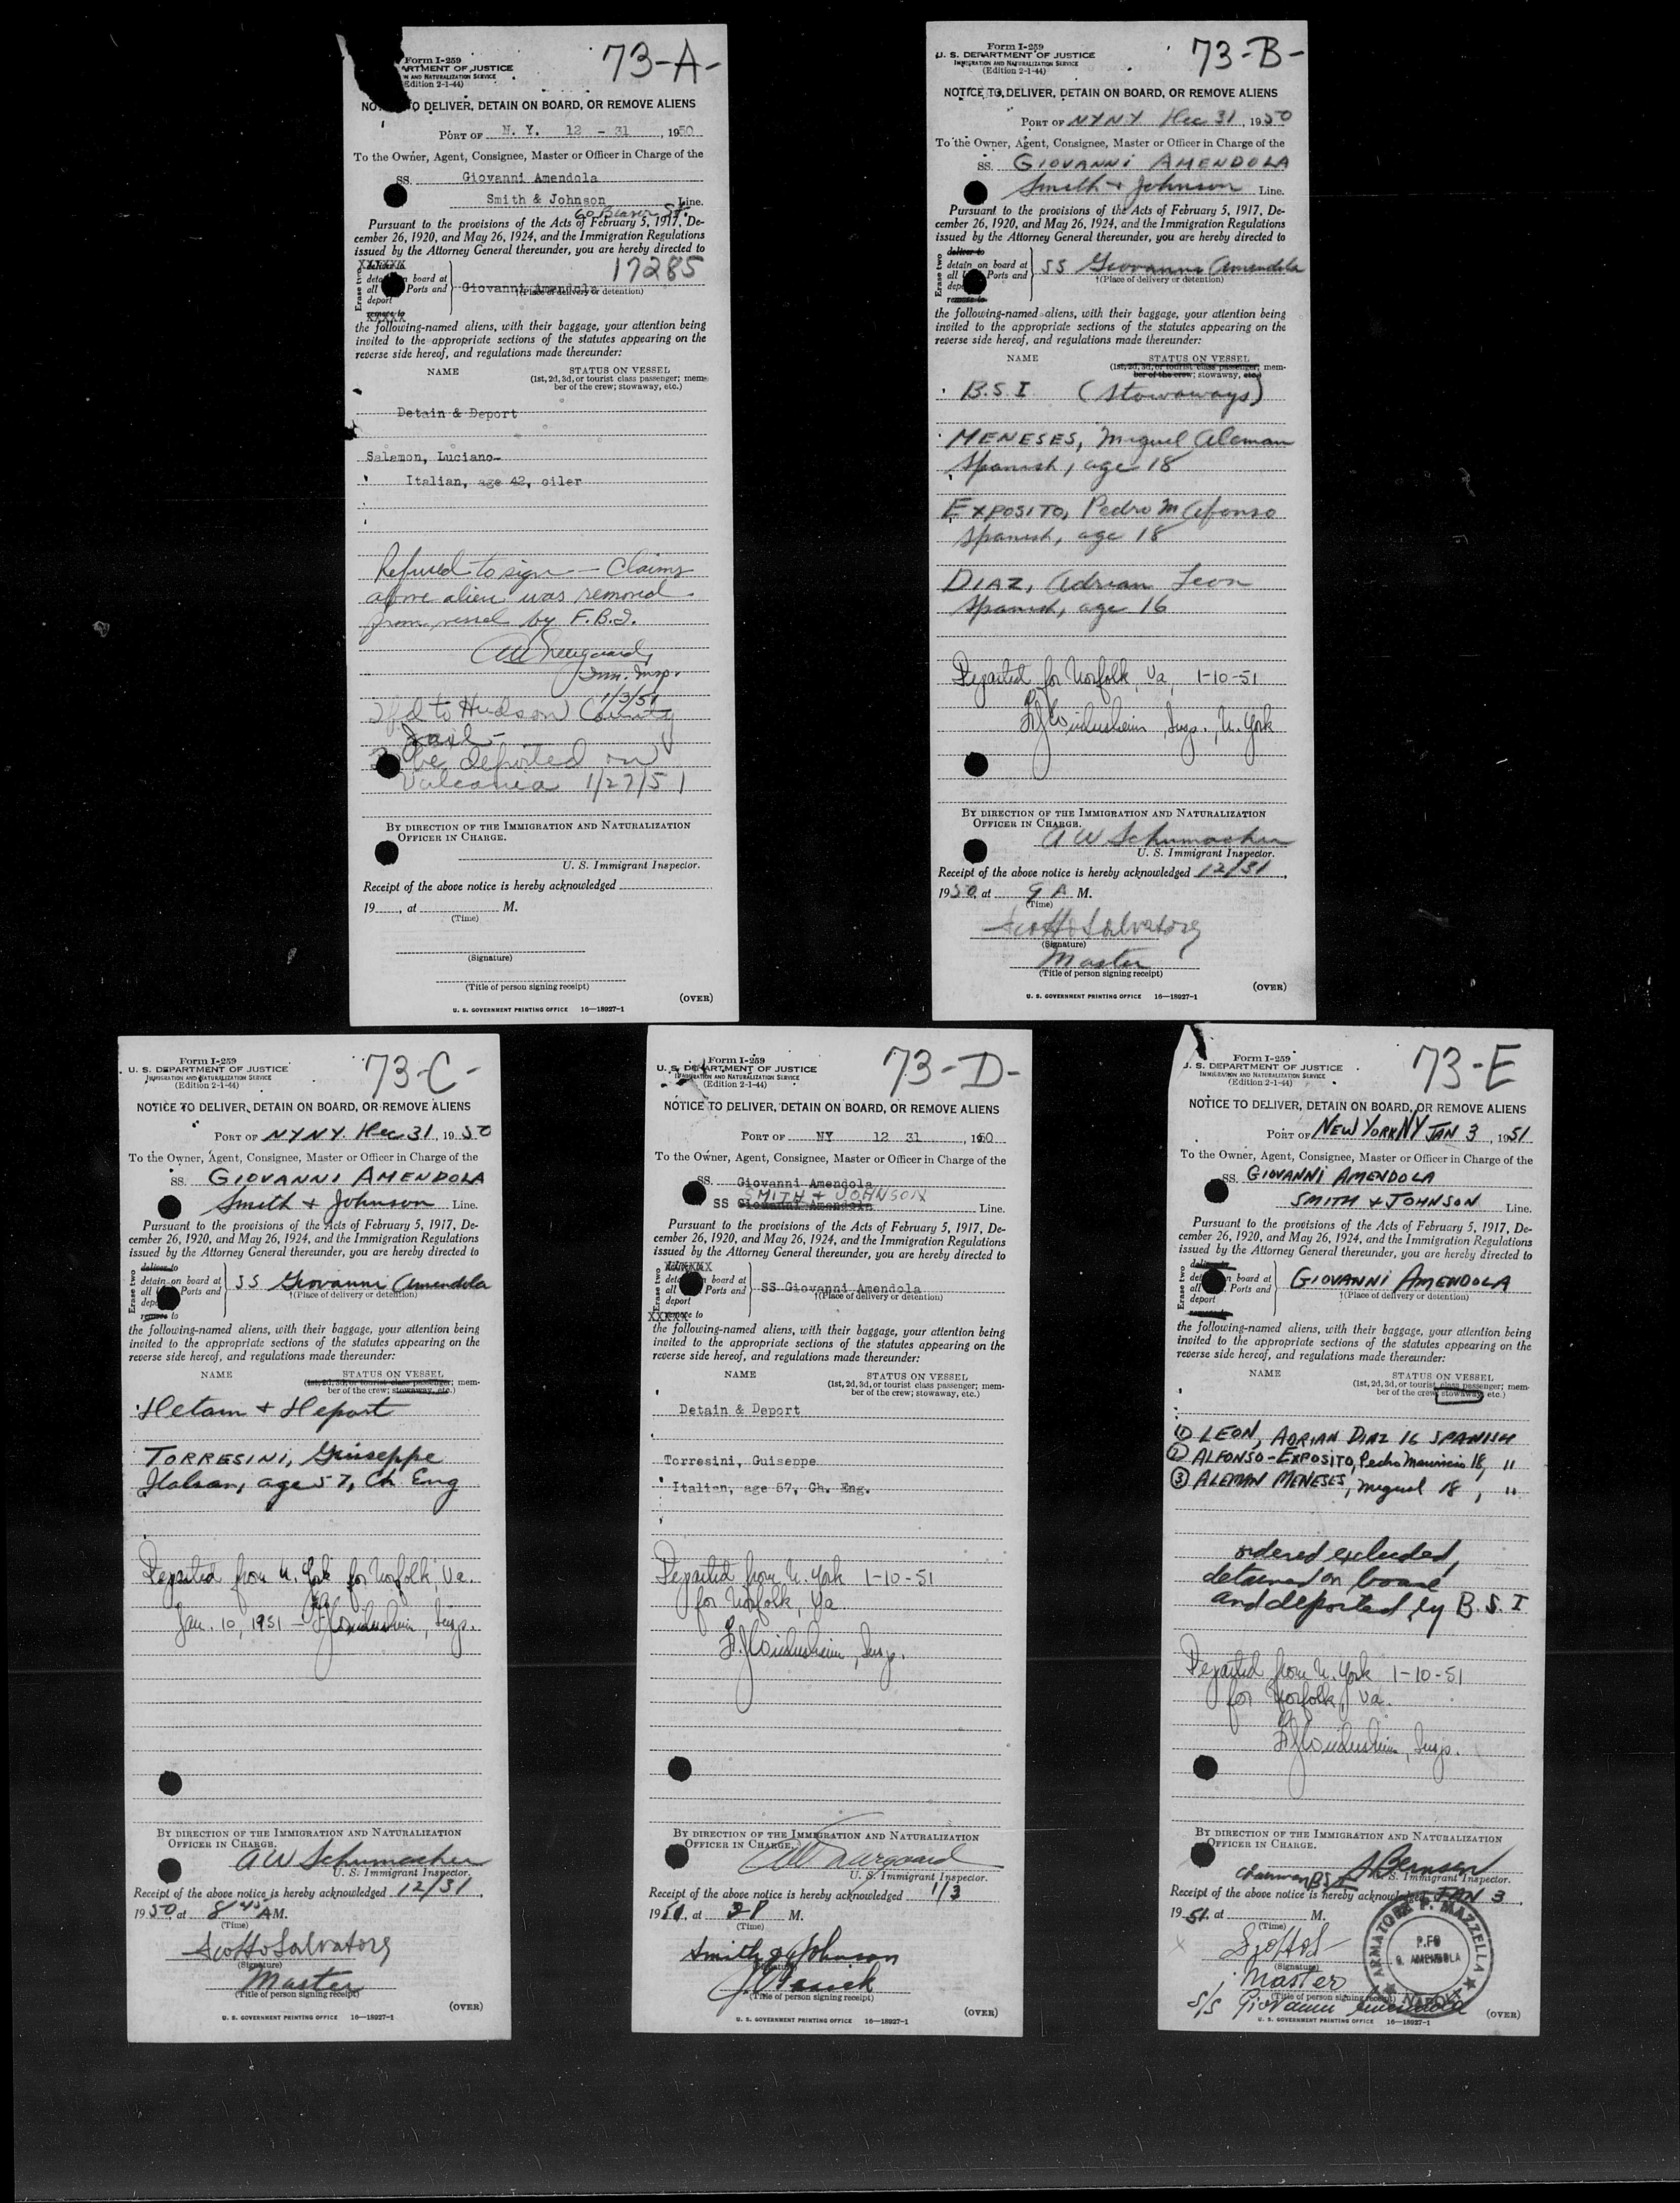 73-A-
Form I-259
ARTMENT OF JUSTICE
N AND NATURALIZATION SERVICE
Edition 2-1-44)
NO TO DELIVER, DETAIN ON BOARD, OR REMOVE ALIENS
PORT OF N. Y. 12 - 31, 1950
To the Owner, Agent, Consignee, Master or Officer in Charge of the
SS. Giovanni Amendola
Smith & Johnson Line.
60 Beaver St.
Pursuant to the provisions of the Acts of February 5, 1917, De-
cember 26, 1920, and May 26, 1924, and the Immigration Regulations
issued by the Attorney General thereunder, you are hereby directed to
17285
Erase two
deliver to
detain on board at
all U. Ports and
deport
remove to
Giovanni Amendola
†(Place of delivery or detention)
the following-named aliens, with their baggage, your attention being
invited to the appropriate sections of the statutes appearing on the
reverse side hereof, and regulations made thereunder:
NAME STATUS ON VESSEL
(1st, 2d, 3d, or tourist class passenger; mem-
ber of the crew; stowaway, etc.)
Detain & Deport
Salemon, Luciano-
Italian, age 42, oiler
Refused to sign - Claims
above alien was removed
from vessel by F.B.I.
Imm. Insp.
1/3/51
Tfd to Hudson County
Jail -
To be deported on
Vulcania 1/27/51
BY DIRECTION OF THE IMMIGRATION AND NATURALIZATION
OFFICER IN CHARGE.
U. S. Immigrant Inspector.
Receipt of the above notice is hereby acknowledged
19__, at M.
(Time)
(Signature)
(Title of person signing receipt)
(OVER)
U. S. GOVERNMENT PRINTING OFFICE 16—18927-1
73-B-
Form I-259
U. S. DEPARTMENT OF JUSTICE
IMMIGRATION AND NATURALIZATION SERVICE
(Edition 2-1-44)
NOTICE TO DELIVER, DETAIN ON BOARD, OR REMOVE ALIENS
PORT OF NYNY Dec 31, 1950
To the Owner, Agent, Consignee, Master or Officer in Charge of the
SS. GIOVANNI AMENDOLA
Smith + Johnson Line.
Pursuant to the provisions of the Acts of February 5, 1917, De-
cember 26, 1920, and May 26, 1924, and the Immigration Regulations
issued by the Attorney General thereunder, you are hereby directed to
Erase two
deliver to
detain on board at
all U Ports and
depo
remove to
SS Giovanni Amendola
†(Place of delivery or detention)
the following-named aliens, with their baggage, your attention being
invited to the appropriate sections of the statutes appearing on the
reverse side hereof, and regulations made thereunder:
NAME STATUS ON VESSEL
(1st, 2d, 3d, or tourist class passenger; mem-
ber of the crew; stowaway, etc.)
B.S.I (Stowaways)
MENESES, Miguel Aleman
Spanish, age 18
EXPOSITO, Pedro M Afonso
Spanish, age 18
DIAZ, Adrian Leon
Spanish, age 16
Departed for Norfolk, Va, 1-10-51
Insp., N. York
BY DIRECTION OF THE IMMIGRATION AND NATURALIZATION
OFFICER IN CHARGE.
A W Schumacher
U. S. Immigrant Inspector.
Receipt of the above notice is hereby acknowledged 12/31,
1950, at 9 A M.
(Time)
Scotto Salvatore
(Signature)
Master
(Title of person signing receipt)
(OVER)
U. S. GOVERNMENT PRINTING OFFICE 16—18927-1
73-C-
Form I-259
U. S. DEPARTMENT OF JUSTICE
IMMIGRATION AND NATURALIZATION SERVICE
(Edition 2-1-44)
NOTICE TO DELIVER, DETAIN ON BOARD, OR REMOVE ALIENS
PORT OF NYNY. Dec 31, 1950
To the Owner, Agent, Consignee, Master or Officer in Charge of the
SS. GIOVANNI AMENDOLA
Smith + Johnson Line.
Pursuant to the provisions of the Acts of February 5, 1917, De-
cember 26, 1920, and May 26, 1924, and the Immigration Regulations
issued by the Attorney General thereunder, you are hereby directed to
Erase two
deliver to
detain on board at
all U Ports and
depo
remove to
SS Giovanni Amendola
†(Place of delivery or detention)
the following-named aliens, with their baggage, your attention being
invited to the appropriate sections of the statutes appearing on the
reverse side hereof, and regulations made thereunder:
NAME STATUS ON VESSEL
(1st, 2d, 3d, or tourist class passenger; mem-
ber of the crew; stowaway, etc.)
Detain + Deport
TORRESINI, Giuseppe
Italian, age 57, Ch Eng
Departed from N. York for Norfolk, Va.
Jan. 10, 1951 - Insp.
BY DIRECTION OF THE IMMIGRATION AND NATURALIZATION
OFFICER IN CHARGE.
A W Schumacher
U. S. Immigrant Inspector.
Receipt of the above notice is hereby acknowledged 12/31,
1950, at 8 45 AM.
(Time)
Scotto Salvatore
(Signature)
Master
(Title of person signing receipt)
(OVER)
U. S. GOVERNMENT PRINTING OFFICE 16—18927-1
73-D-
Form I-259
U. S. DEPARTMENT OF JUSTICE
IMMIGRATION AND NATURALIZATION SERVICE
(Edition 2-1-44)
NOTICE TO DELIVER, DETAIN ON BOARD, OR REMOVE ALIENS
PORT OF NY 12 31, 1950
To the Owner, Agent, Consignee, Master or Officer in Charge of the
SS. Giovanni Amendola
SMITH + JOHNSON
SS Giovanni Amendola Line.
Pursuant to the provisions of the Acts of February 5, 1917, De-
cember 26, 1920, and May 26, 1924, and the Immigration Regulations
issued by the Attorney General thereunder, you are hereby directed to
Erase two
XXXXXX
deta board at
all Ports and
deport
XXXXX remove to
SS Giovanni Amendola
†(Place of delivery or detention)
the following-named aliens, with their baggage, your attention being
invited to the appropriate sections of the statutes appearing on the
reverse side hereof, and regulations made thereunder:
NAME STATUS ON VESSEL
(1st, 2d, 3d, or tourist class passenger; mem-
ber of the crew; stowaway, etc.)
Detain & Deport
Torresini, Guiseppe
Italian, age 57, Ch. Eng.
Departed from N. York 1-10-51
for Norfolk, Va
Insp.
BY DIRECTION OF THE IMMIGRATION AND NATURALIZATION
OFFICER IN CHARGE.
U. S. Immigrant Inspector.
Receipt of the above notice is hereby acknowledged 1/3
1951, at 2 P M.
(Time)
Smith & Johnson
(Signature)
(Title of person signing receipt)
(OVER)
U. S. GOVERNMENT PRINTING OFFICE 16—18927-1
73-E
Form I-259
U. S. DEPARTMENT OF JUSTICE
IMMIGRATION AND NATURALIZATION SERVICE
(Edition 2-1-44)
NOTICE TO DELIVER, DETAIN ON BOARD, OR REMOVE ALIENS
PORT OF NEW YORK NY JAN 3, 1951
To the Owner, Agent, Consignee, Master or Officer in Charge of the
SS. GIOVANNI AMENDOLA
SMITH + JOHNSON Line.
Pursuant to the provisions of the Acts of February 5, 1917, De-
cember 26, 1920, and May 26, 1924, and the Immigration Regulations
issued by the Attorney General thereunder, you are hereby directed to
Erase two
deliver to
det n board at
all Ports and
deport
GIOVANNI AMENDOLA
†(Place of delivery or detention)
the following-named aliens, with their baggage, your attention being
invited to the appropriate sections of the statutes appearing on the
reverse side hereof, and regulations made thereunder:
NAME STATUS ON VESSEL
(1st, 2d, 3d, or tourist class passenger; mem-
ber of the crew; stowaway, etc.)
(1) LEON, ADRIAN DIAZ 16 SPANISH
(2) ALFONSO-EXPOSITO, Pedro Mauricio 18, "
(3) ALEMAN MENESES, Miguel 18, "
ordered excluded,
detained on board
and deported by B.S.I
Departed from N. York 1-10-51
for Norfolk, Va.
Insp.
BY DIRECTION OF THE IMMIGRATION AND NATURALIZATION
OFFICER IN CHARGE.
Chairman BSI
U. S. Immigrant Inspector.
Receipt of the above notice is hereby acknowledged JAN 3
1951, at M.
(Time)
(Signature)
Master
(Title of person signing receipt)
S/S Giovanni Amendola
ARMATORE P. MAZZELLA
P.FO
G. AMENDOLA
NAPOLI
(OVER)
U. S. GOVERNMENT PRINTING OFFICE 16—18927-1